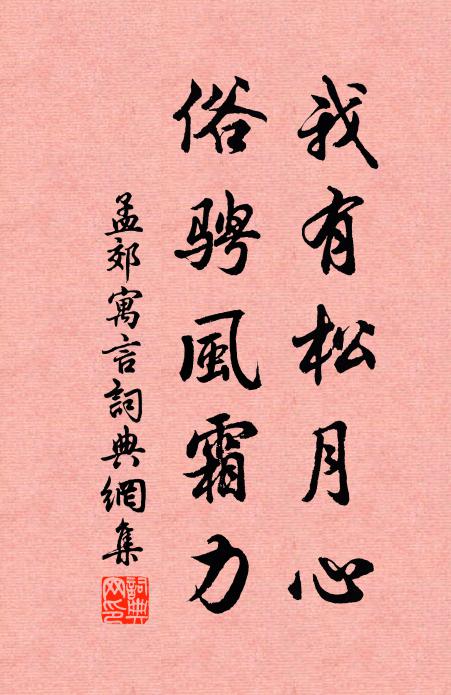 我有松月心
俗骋風霜力
孟郊寓言詞典網集
詞典网印